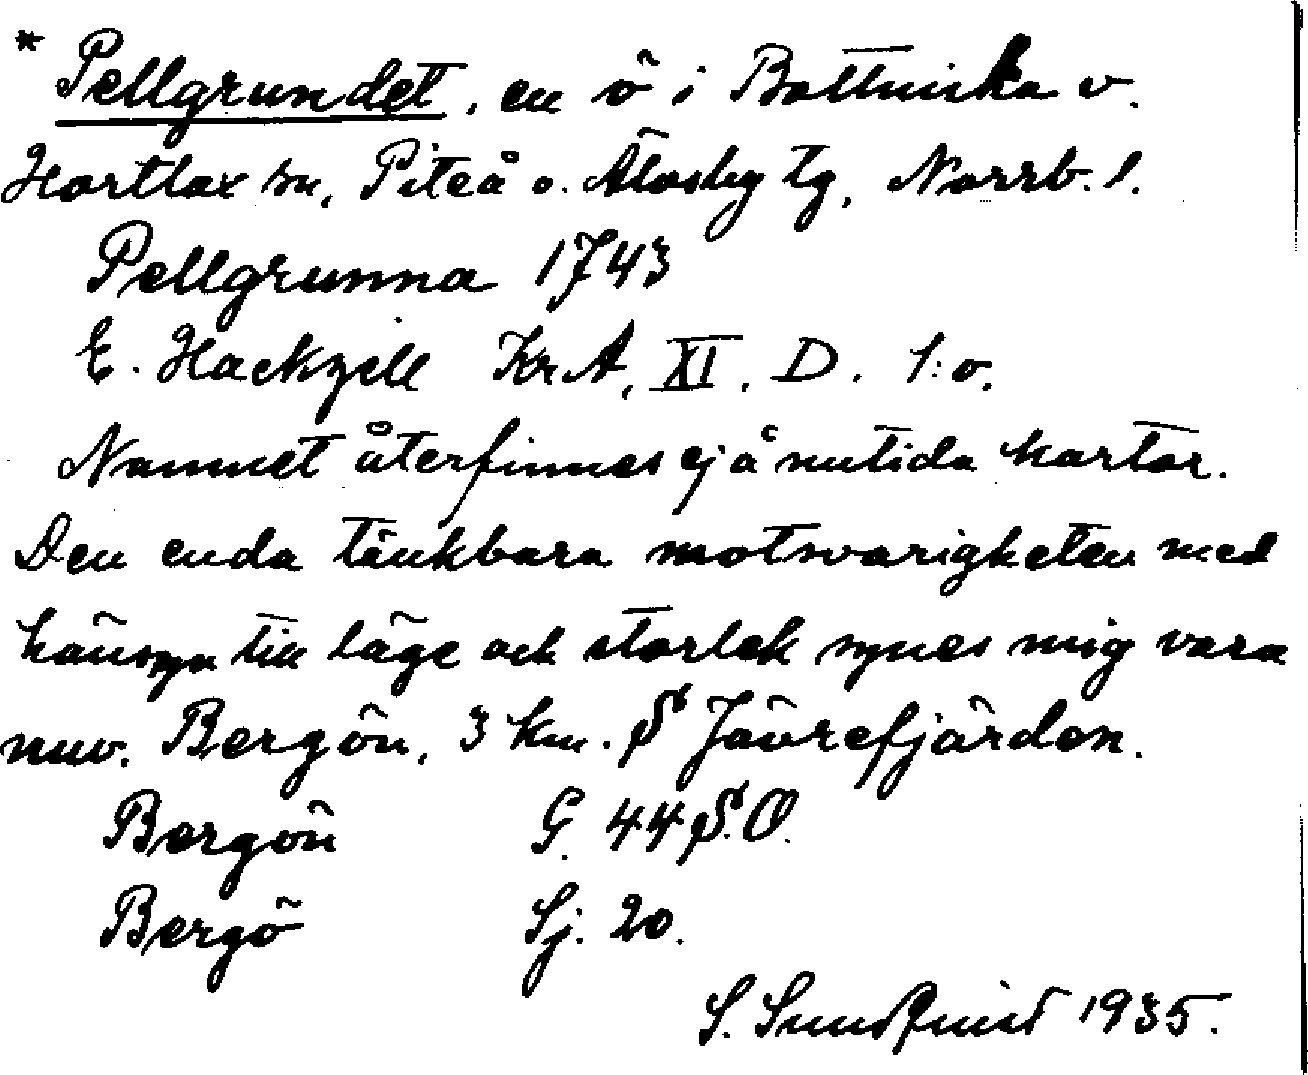 * Pellgrundet, en ö i Bottniska v.
Hortlax sn, Piteå o. Älvsby tg, Norrb. l.
Pellgrunna 1743
E. Hackzell KrA, XI. D. 1:o.
Namnet återfinnes ej å nutida kartor.
Den enda tänkbara motsvarigheten med
hänsyn till läge och storlek synes mig vara
nuv. Bergön, 3 km. S Jävrefjärden.
Bergön G. 44 S.O.
Bergö Sj. 20.
S. Sundqvist 1935.